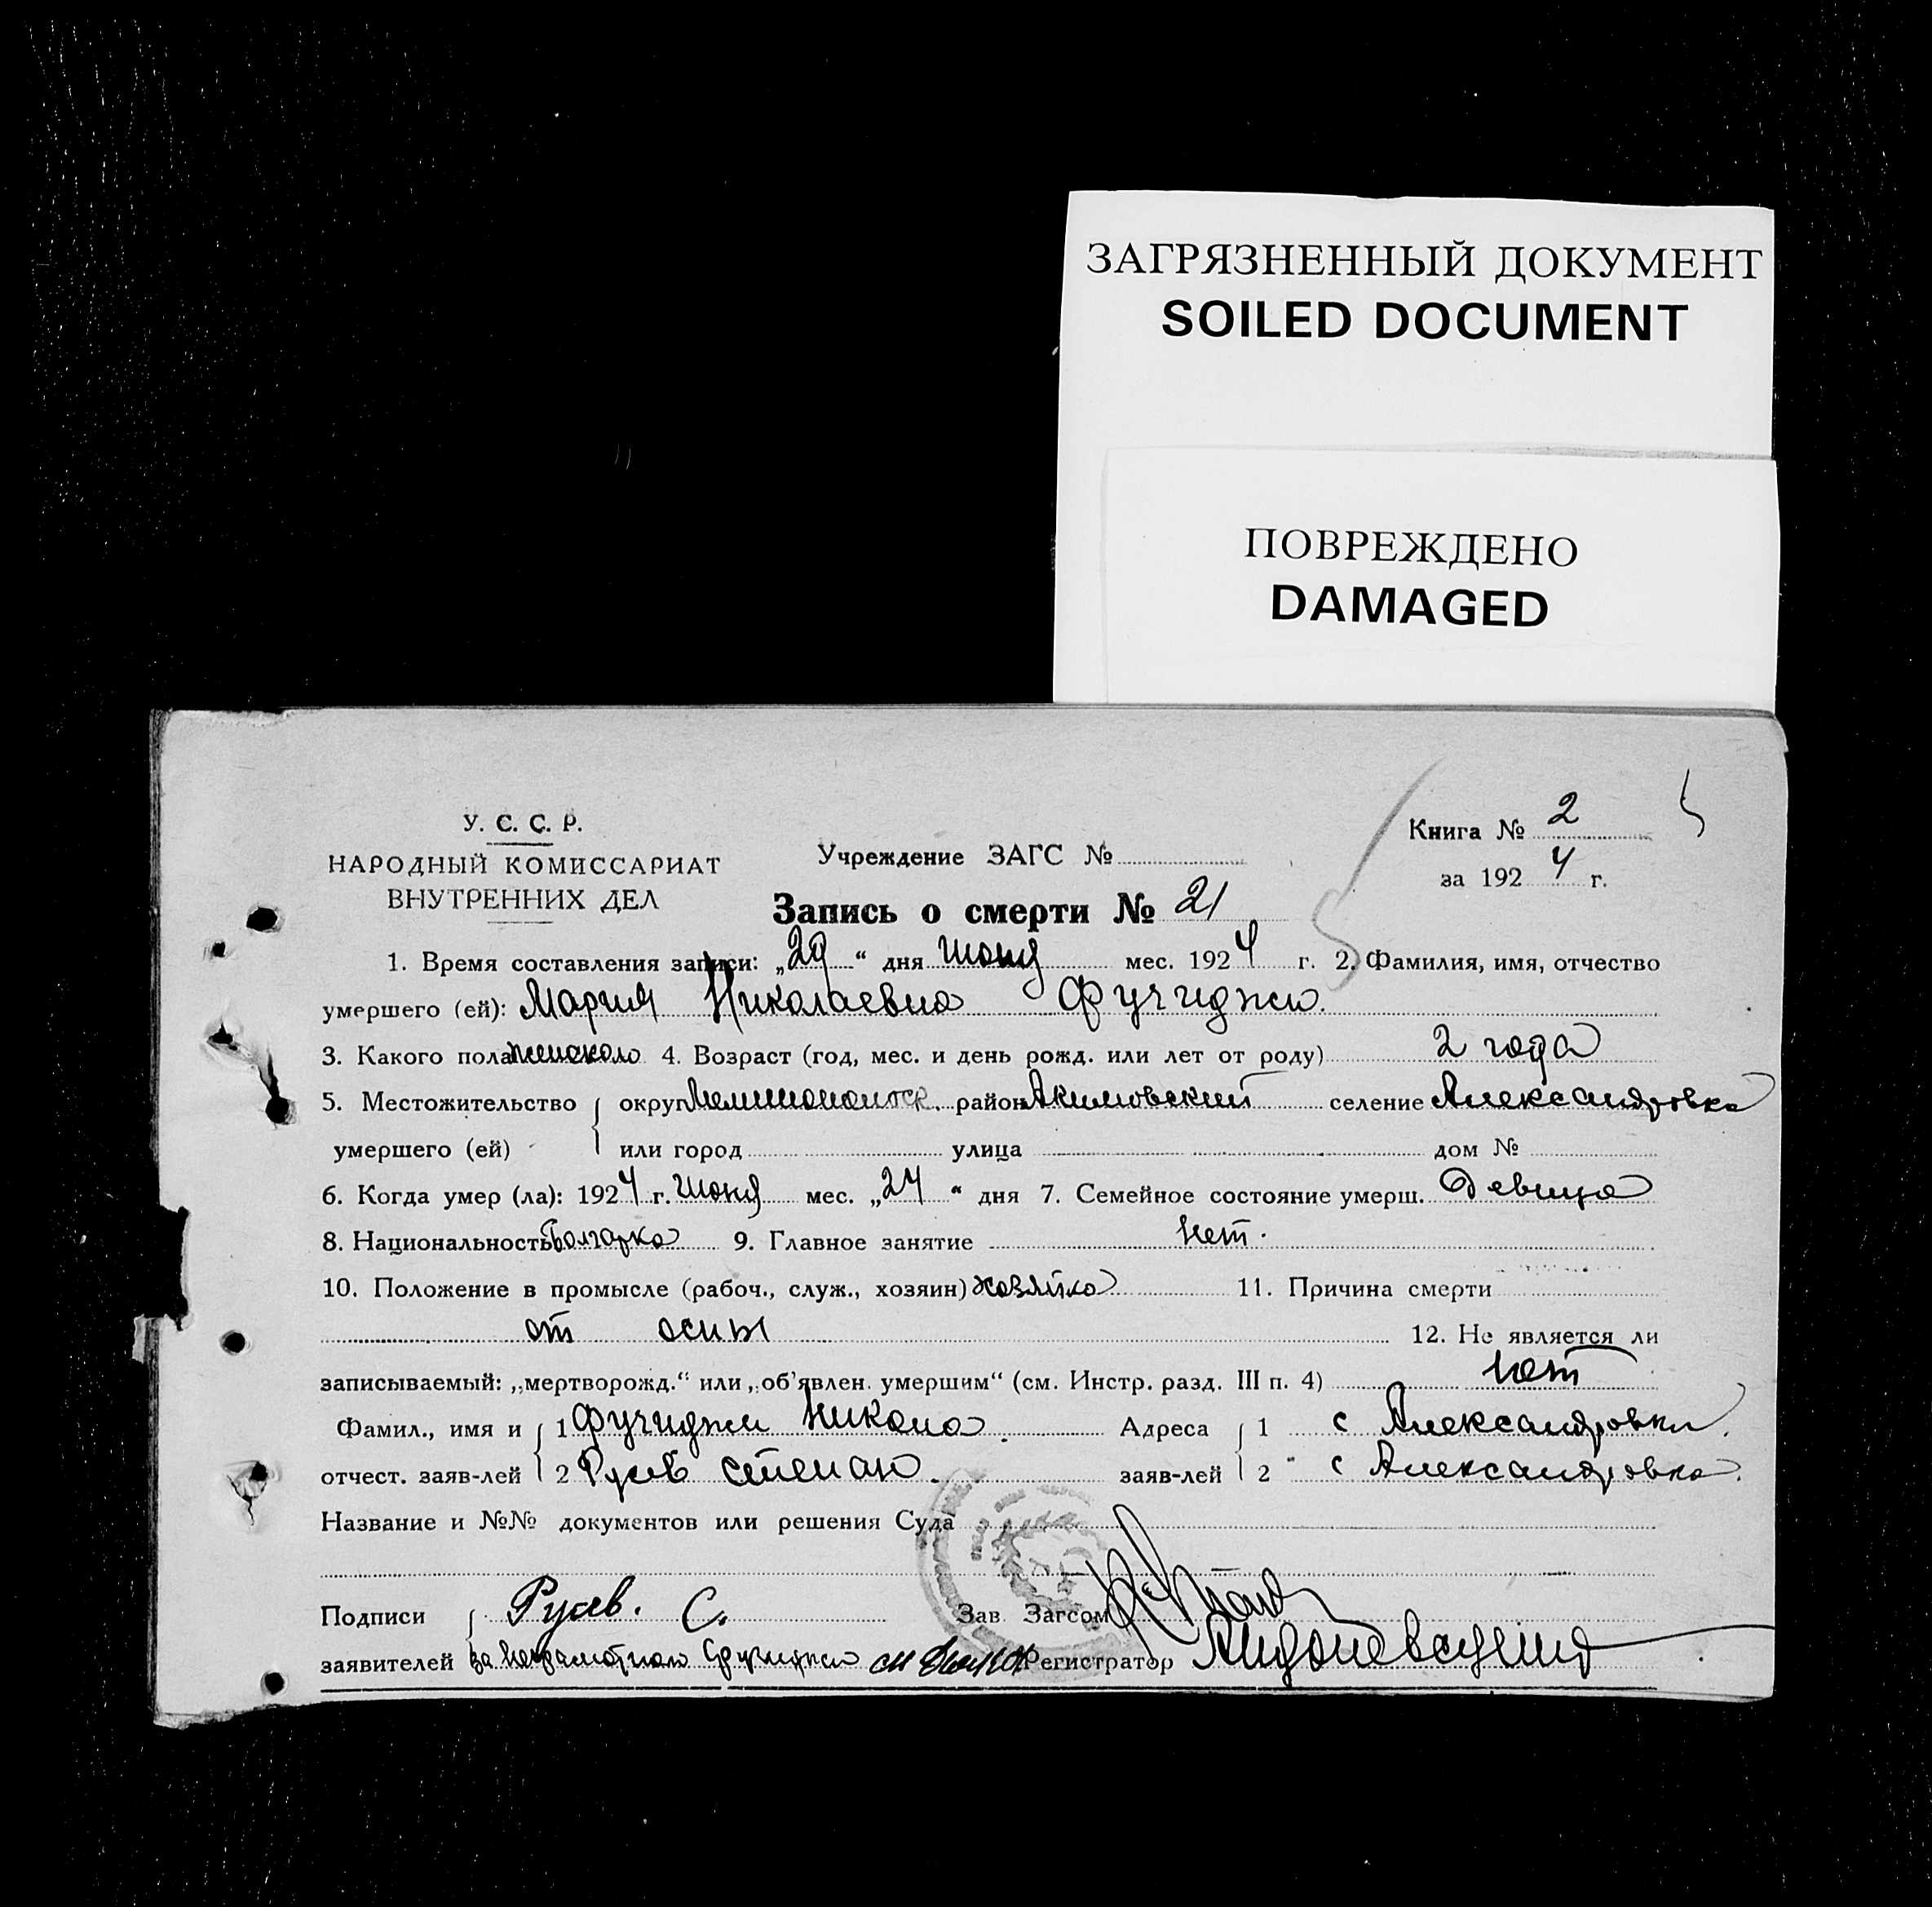 ЗАГРЯЗНЕННЫЙ ДОКУМЕНТ
SOILED DOCUMENT
ПОВРЕЖДЕНО
DAMAGED
У. С. С. Р.
НАРОДНЫЙ КОМИССАРИАТ
ВНУТРЕННИХ ДЕЛ
Учреждение ЗАГС №
Книга № 2
за 1924 г.
Запись о смерти № 21
1. Время составления записи: „29“ дня июня мес. 1924 г. 2. Фамилия, имя, отчество
умершего (ей): Мария Николаевна Фучиджи
3. Какого пола женского 4. Возраст (год, мес. и день рожд. или лет от роду) 2 года
5. Местожительство округ район Акимовский селение Александровка
умершего (ей) или город улица дом №
6. Когда умер (ла): 1924 г. июня мес. „24“ дня 7. Семейное состояние умерш. Девица
8. Национальность Болгарка 9. Главное занятие нет.
10. Положение в промысле (рабоч., служ., хозяин) хозяйка 11. Причина смерти
от оспы 12. Не является ли
записываемый: „мертворожд.“ или „об'явлен. умершим“ (см. Инстр. разд. III п. 4) нет
Фамил., имя и 1 Фучиджи Никола Адреса 1 с Александровка
отчест. заяв-лей 2 Русев Степан. заяв-лей 2 с Александровка.
Название и №№ документов или решения Суда
Подписи Русев. С. Зав Загсом
заявителей за неграмотного Фучиджи Регистратор